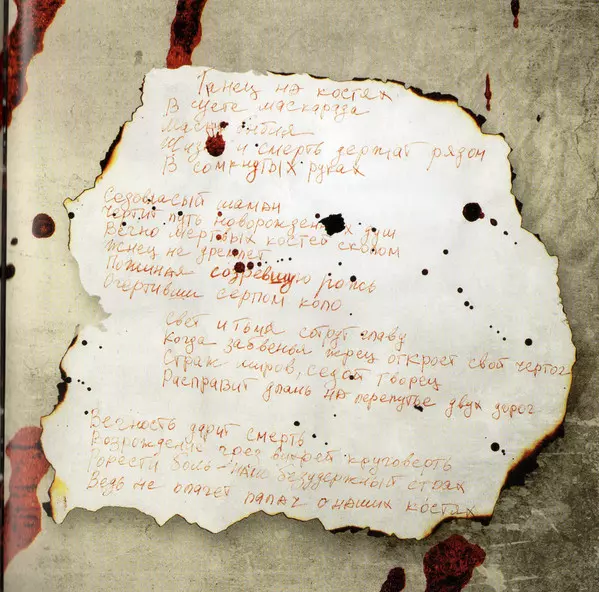 Танец на костях
В суете маскарада
Жизнь и смерть держат рядом
В сомкнутых руках
Седовласый шаман
Чертит путь новорожденных душ
Вечно мертвых костей сколом
Жнец не дремлет
Пожиная созревшую рожь
Очертивши серпом коло
Свет и тьма споют славу
Когда забвенья жрец откроет свой чертог
Страж миров, седой творец
Расправит длань на перепутье двух дорог
Вечность дарит смерть
Возрождение чрез круговерть
боль - наш безудержный страх
Ведь не плачет палач о наших костях